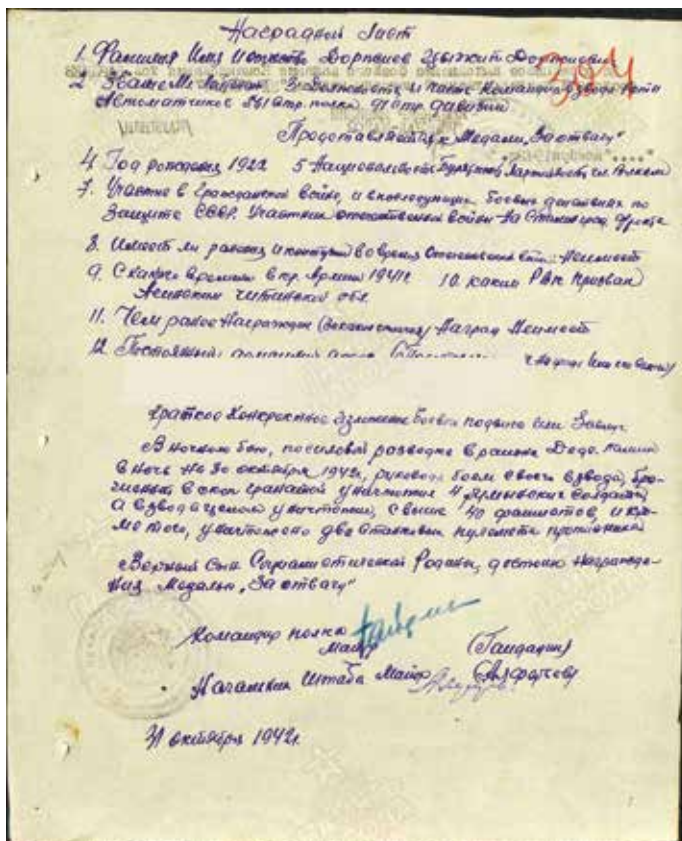 Наградной лист
1. Фамилия Имя и отчество Доржиев Цыжит Доржиевич
394
2. Звание Мл. Лейтенант 3. Должность и часть Командир взвода Роты
Автоматчиков 561 стр. полка 91 стр. дивизии.
Представляется к Медали „За отвагу“
4. Год рождения 1922 5 Национальность Бурят
7. Участие в Гражданской войне, и последующих боевых действиях по
Защите СССР. Участник отечественной войны на Сталинград фронте
8. Имеет ли ранения и контузии во время Отечественной войны: Неимеет
9. С какого времени в кр. Армии 1941г. 10. каким РВК призван
Читинской обл.
11. Чем ранее Награжден (за какие отличия) Наград Неимеет
12. Постоянный домашний адрес
Краткое Конкретное изложение боевого подвига или Заслуг
В ночном бою, по силовой разведке в районе
в ночь на 30 октября 1942г, руководя боем своего взвода, бро-
гранатой уничтожил 4 румынских солдата
а взвод в целом уничтожил, свыше 40 фашистов, и кро-
ме того, уничтожено два станковых пулемета противника
Верный Сын Социалистической Родины, достоин Награжде-
ния Медалью „За отвагу“
Командир полка
Майор (Гайдадин)
Начальник Штаба Майор
31 октября 1942г.